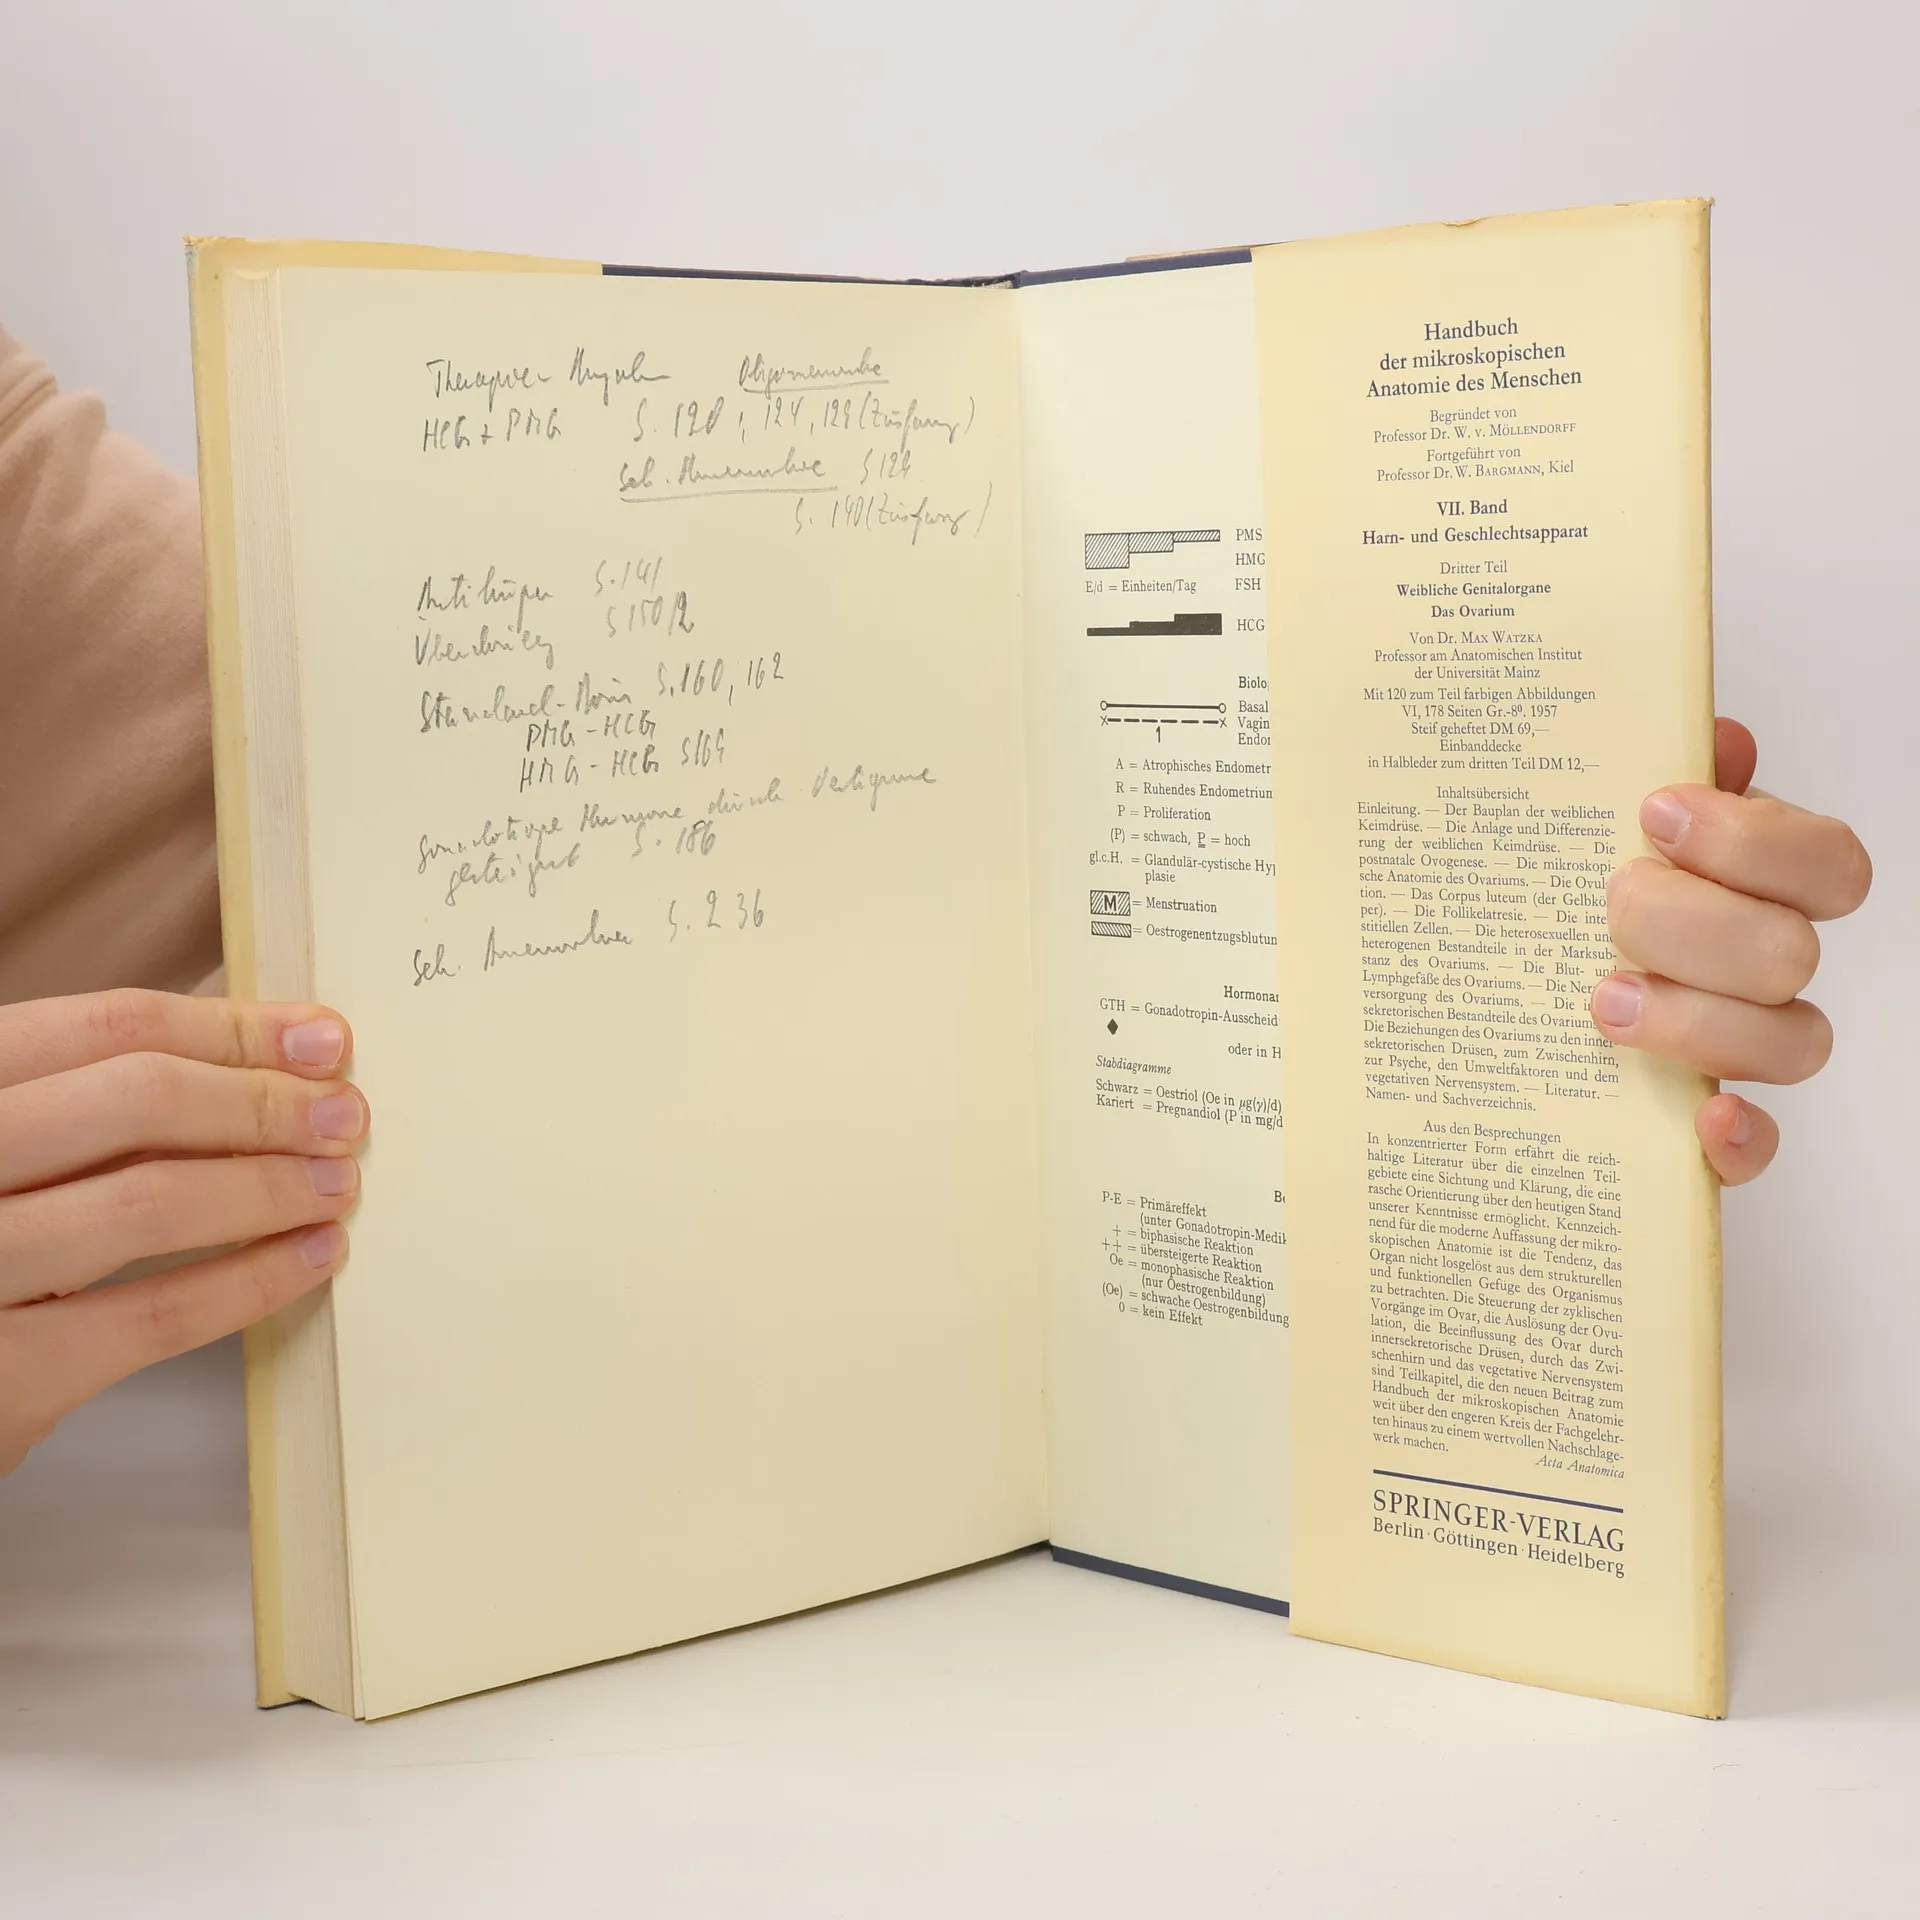 HCG + PMG S. 120, 124, 129 (Zusfang)
Sek. Amenorrhoe S 129
S. 140 (Zusfang)
S. 141
S 150/2
Standard-Dosis S. 160, 162
PMG - HCG
HMG - HCG S 169
Gonadotrope Hormone durch
gesteigert S. 186
Sek. Amenorrhoe S. 236
PMS
HMG
E/d = Einheiten/Tag FSH
HCG
Biolo
Basal
Vagin
1
Endor
A = Atrophisches Endometr
R = Ruhendes Endometrium
P = Proliferation
(P) = schwach, P = hoch
gl.c.H. = Glandulär-cystische Hy
plasie
M = Menstruation
= Oestrogenentzugsblutun
Hormonar
GTH = Gonadotropin-Ausscheid
oder in H
Stabdiagramme
Schwarz = Oestriol (Oe in µg(γ)/d)
Kariert = Pregnandiol (P in mg/d
P-E = Primäreffekt
(unter Gonadotropin-Medik
+ = biphasische Reaktion
++ = übersteigerte Reaktion
Oe = monophasische Reaktion
(nur Oestrogenbildung)
(Oe) = schwache Oestrogenbildung
0 = kein Effekt
Handbuch
der mikroskopischen
Anatomie des Menschen
Begründet von
Professor Dr. W. v. MÖLLENDORFF
Fortgeführt von
Professor Dr. W. BARGMANN, Kiel
VII. Band
Harn- und Geschlechtsapparat
Dritter Teil
Weibliche Genitalorgane
Das Ovarium
Von Dr. MAX WATZKA
Professor am Anatomischen Institut
der Universität Mainz
Mit 120 zum Teil farbigen Abbildungen
VI, 178 Seiten Gr.-8⁰. 1957
Steif geheftet DM 69,—
Einbanddecke
in Halbleder zum dritten Teil DM 12,—
Inhaltsübersicht
Einleitung. — Der Bauplan der weiblichen
Keimdrüse. — Die Anlage und Differenzie-
rung der weiblichen Keimdrüse. — Die
postnatale Ovogenese. — Die mikroskopi-
sche Anatomie des Ovariums. — Die Ovul
tion. — Das Corpus luteum (der Gelbkö
per). — Die Follikelatresie. — Die inte
stitiellen Zellen. — Die heterosexuellen und
heterogenen Bestandteile in der Marksub-
stanz des Ovariums. — Die Blut- und
Lymphgefäße des Ovariums. — Die Ner
versorgung des Ovariums. — Die i
sekretorischen Bestandteile des Ovariums
Die Beziehungen des Ovariums zu den inner
sekretorischen Drüsen, zum Zwischenhirn,
zur Psyche, den Umweltfaktoren und dem
vegetativen Nervensystem. — Literatur. —
Namen- und Sachverzeichnis.
Aus den Besprechungen
In konzentrierter Form erfährt die reich-
haltige Literatur über die einzelnen Teil-
gebiete eine Sichtung und Klärung, die eine
rasche Orientierung über den heutigen Stand
unserer Kenntnisse ermöglicht. Kennzeich-
nend für die moderne Auffassung der mikro-
skopischen Anatomie ist die Tendenz, das
Organ nicht losgelöst aus dem strukturellen
und funktionellen Gefüge des Organismus
zu betrachten. Die Steuerung der zyklischen
Vorgänge im Ovar, die Auslösung der Ovu-
lation, die Beeinflussung des Ovar durch
innersekretorische Drüsen, durch das Zwi-
schenhirn und das vegetative Nervensystem
sind Teilkapitel, die den neuen Beitrag zum
Handbuch der mikroskopischen Anatomie
weit über den engeren Kreis der Fachgelehr-
ten hinaus zu einem wertvollen Nachschlage-
werk machen.
Acta Anatomica
SPRINGER-VERLAG
Berlin · Göttingen · Heidelberg